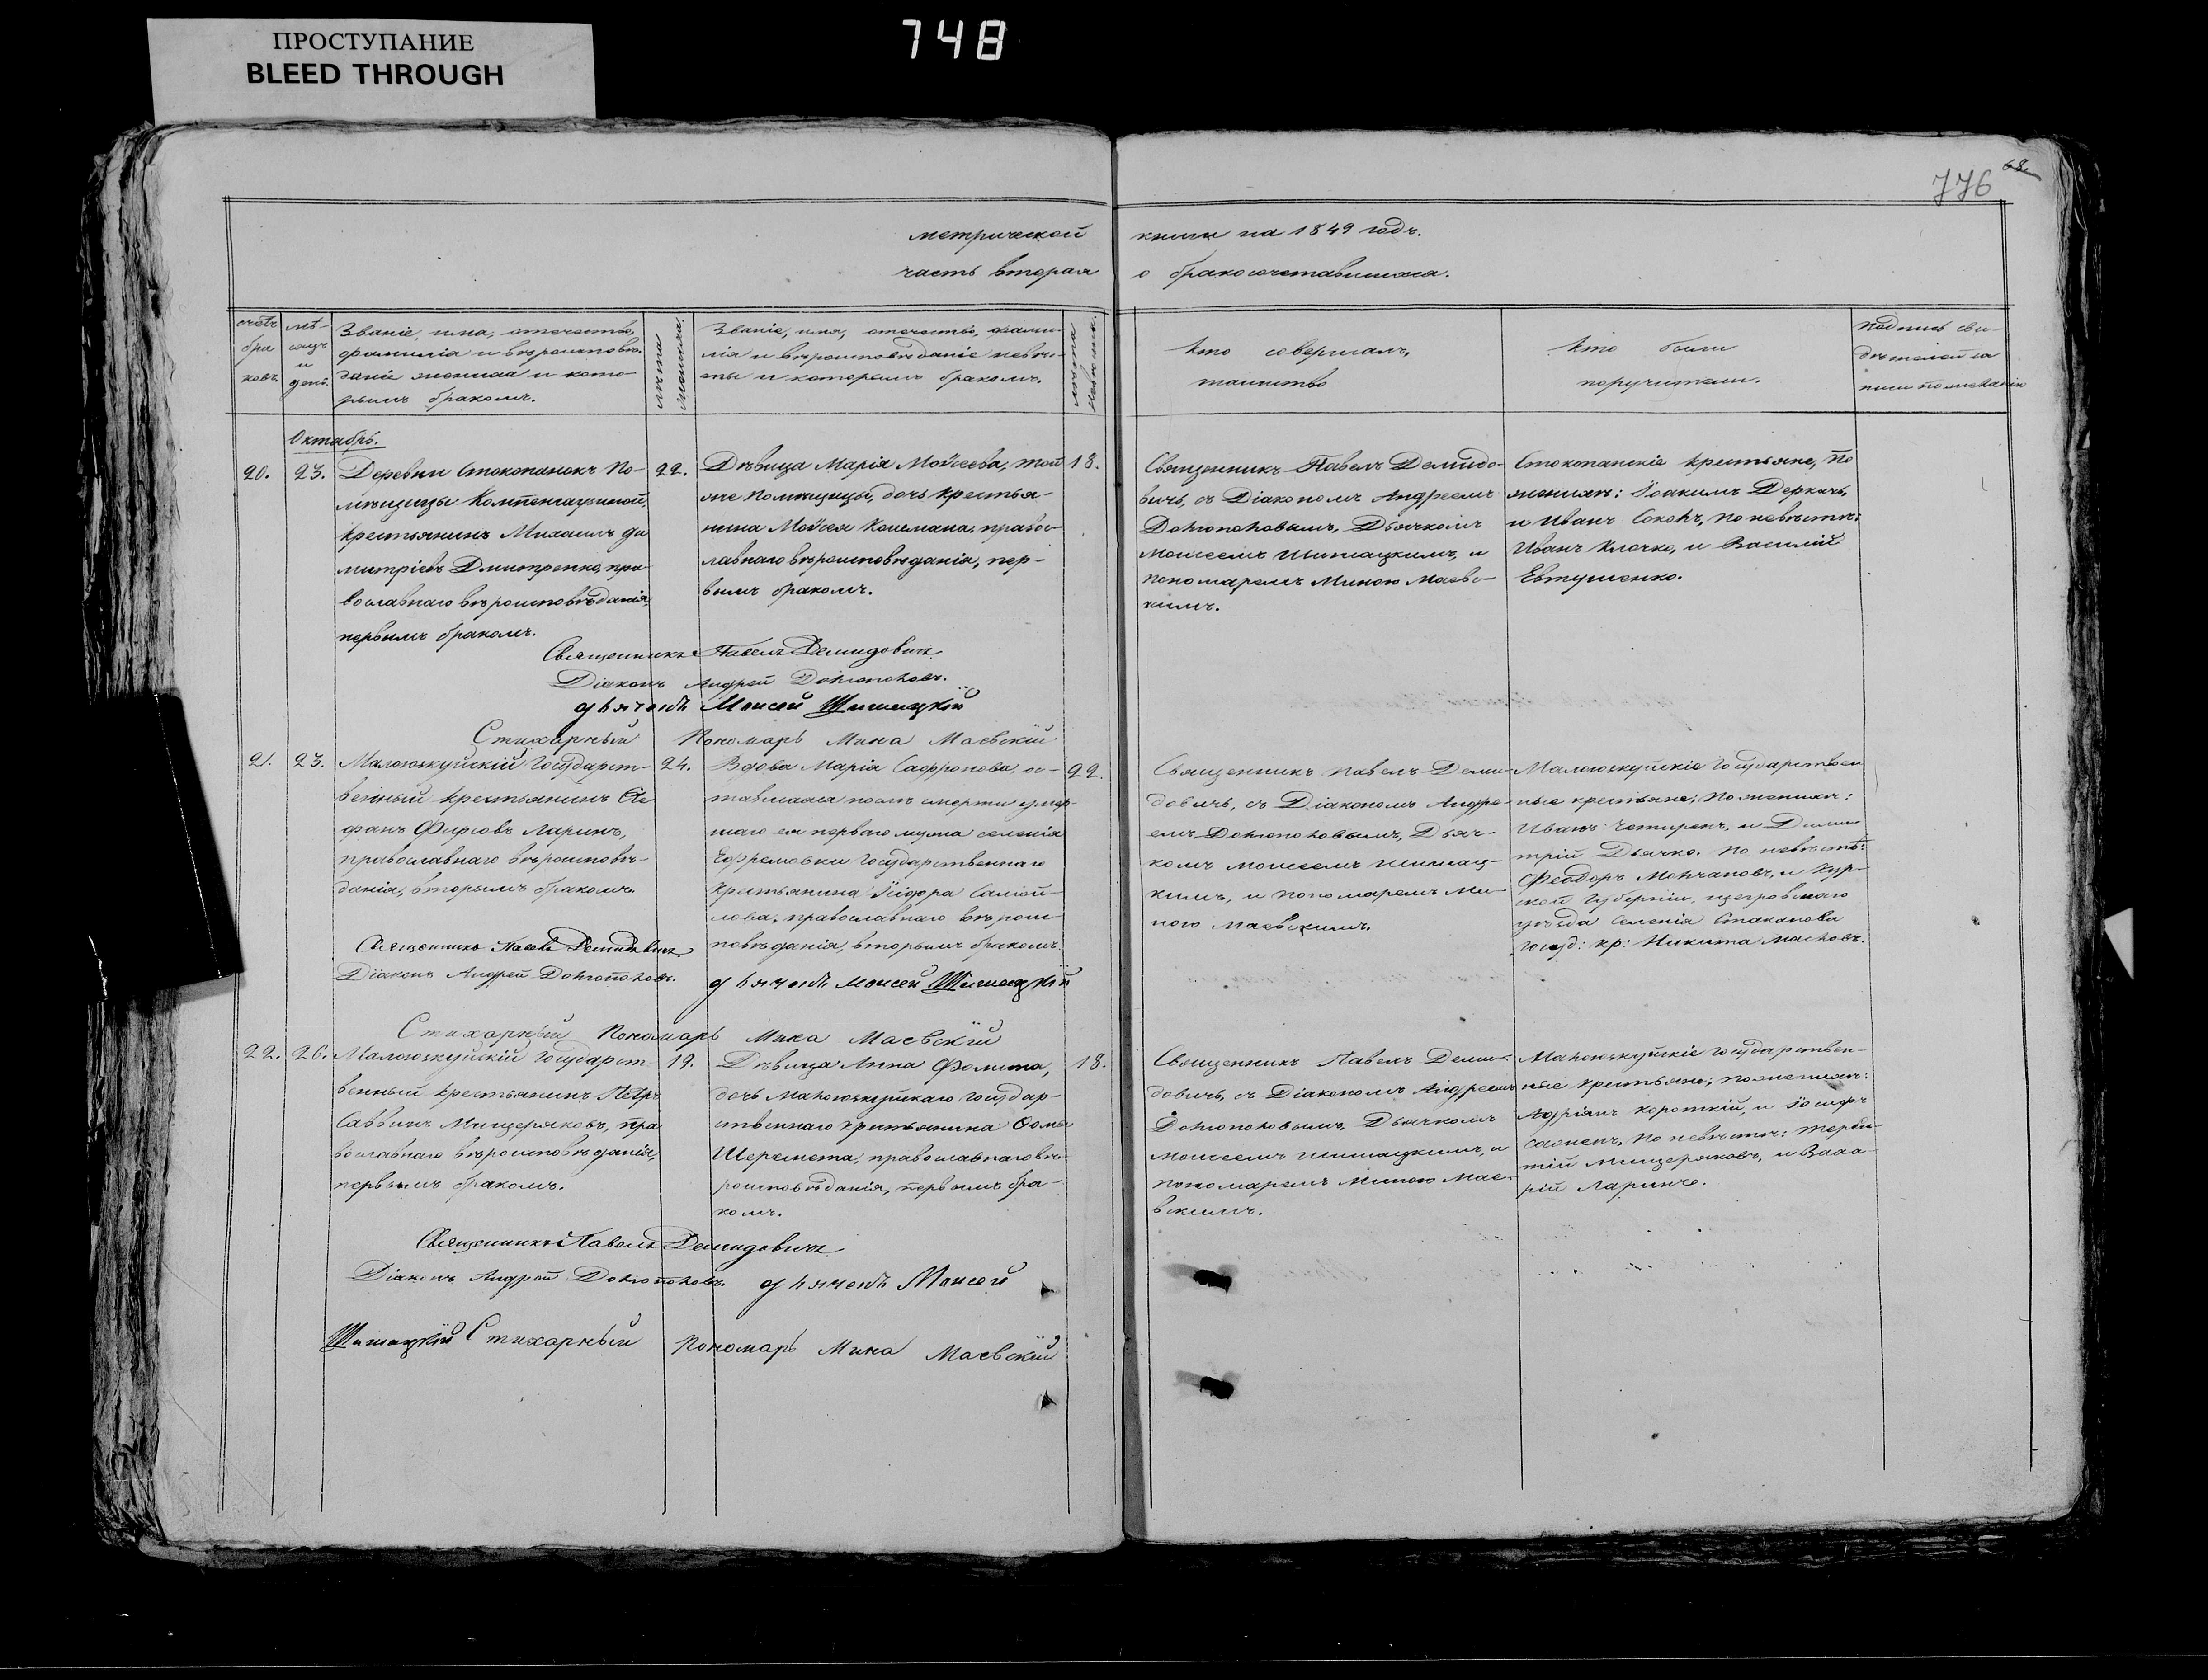 ПРОСТУПАНИЕ
BLEED THROUGH
748
776
68.
метрической книги на 1849 годъ.
часть вторая о бракосочетавшихся.
счетъ браковъ.
мѣсяцъ и день.
Званіе, имя, отечество,
фамилія и вѣроисповѣ-
даніе жениха и кото-
рымъ бракомъ.
лѣта жениха.
Званіе, имя, отечество, фами-
лія и вѣроисповѣданіе невѣс-
ты и которымъ бракомъ.
лѣта невѣсты.
Кто совершалъ
таинство
Кто были
поручители.
Подпись сви-
дѣтелей за
писи по желанію
Октябрь.
20. 23.
Деревни Стокопанокъ По-
мѣщицы
крестьянинъ Михаилъ Ди
митріевъ Дмитренко, пра
вославнаго вѣроисповѣданія,
первымъ бракомъ.
22.
Дѣвица Марія Мойсеева, той
же Помѣщицы, дочь крестья-
нина Мойсея Кошмана, правос-
лавнаго вѣроисповѣданія, пер-
вымъ бракомъ.
18.
Священникъ Павелъ Демидо-
вичь, съ Діакономъ Андреемъ
Долгополовымъ, Дьячкомъ
Моисеемъ Шишацкимъ, и
пономаремъ Миною Маевс-
кимъ.
Стокопанскіе крестьяне, По
женихѣ: Іоакимъ Деркачь,
и Иванъ Соколъ, по невѣстѣ:
Иванъ Клочко, и Василій
Евтушенко.
Священникъ Павелъ Демидовичъ
Діаконъ Андрей Долгополовъ.
дьячокъ Моисей Шишацкій
Стихарный Пономарь Мина Маевскій
21. 23.
Малоюзкуйскій Государст-
венный крестьянинъ Сте
фанъ Фирсовъ Ларинъ,
православнаго вѣроисповѣ-
данія, вторымъ бракомъ.
24.
Вдова Марія Сафронова, ос-
тавшаяся послѣ смерти умер-
шаго ея перваго мужа селенія
Ефремовки Государственнаго
крестьянина Самой-
лова, православнаго вѣроис-
повѣданія, вторымъ бракомъ.
22.
Священникъ Павелъ Деми-
довичь, съ Діакономъ Андре-
емъ Долгополовымъ, Дьяч-
комъ Моисеемъ Шишац-
кимъ, и пономаремъ Ми-
ною Маевскимъ.
Малоюзкуйскіе Государствен
ные крестьяне; По женихѣ:
Иванъ и Дими
трій Дьячко. По невѣстѣ:
Феодоръ Молчановъ, и Кур-
ской Губерніи, щегровскаго
уѣзда Селенія Стаканова
Госуд: кр: Никита Масловъ.
Священникъ Павелъ Демидовичъ
Діаконъ Андрей Долгополовъ.
дьячокъ Моисей Шишацкій
Стихарный Пономарь Мина Маевскій
22. 26.
Малоюзкуйскій Государст
венный крестьянинъ Петръ
Саввинъ Мищеряковъ, пра
вославнаго вѣроисповѣданія,
первымъ бракомъ.
19.
Дѣвица Анна Фомина,
дочь Малоюзкуйскаго Государ-
ственнаго крестьянина Фомы
Шеремета, православнаго вѣ-
роисповѣданія, первымъ бра-
комъ.
18.
Священникъ Павелъ Деми-
довичь, съ Діакономъ Андреемъ
Долгополовымъ, Дьячкомъ
Моисеемъ Шишацкимъ, и
пономаремъ Миною Мае-
вскимъ.
Малоюзкуйскіе Государствен-
ные крестьяне; по женихѣ:
Андріянъ короткій, и Іосифъ
по невѣстѣ:
Мищеряковъ, и
Ларинъ.
Священникъ Павелъ Демидовичъ
Діаконъ Андрей Долгополовъ. дьячокъ Моисей
Шишацкій Стихарный Пономарь Мина Маевскій